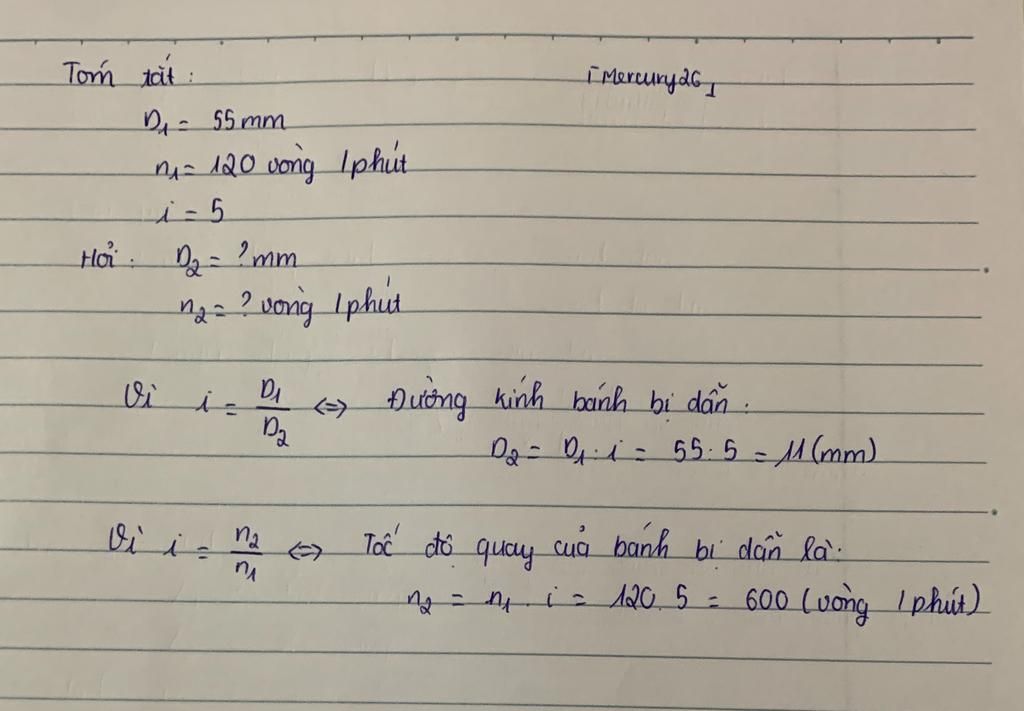 Tóm tắt :
⌈Mercury26⌋
D₁ = 55 mm
n₁ = 120 vòng / phút
i = 5
Hỏi : D₂ = ? mm
n₂ = ? vòng / phút
Vì i = D₁/D₂ ⇔ Đường kính bánh bị dẫn :
D₂ = D₁ : i = 55 : 5 = 11 (mm)
Vì i = n₂/n₁ ⇔ Tốc độ quay của bánh bị dẫn là :
n₂ = n₁ . i = 120 . 5 = 600 (vòng / phút)